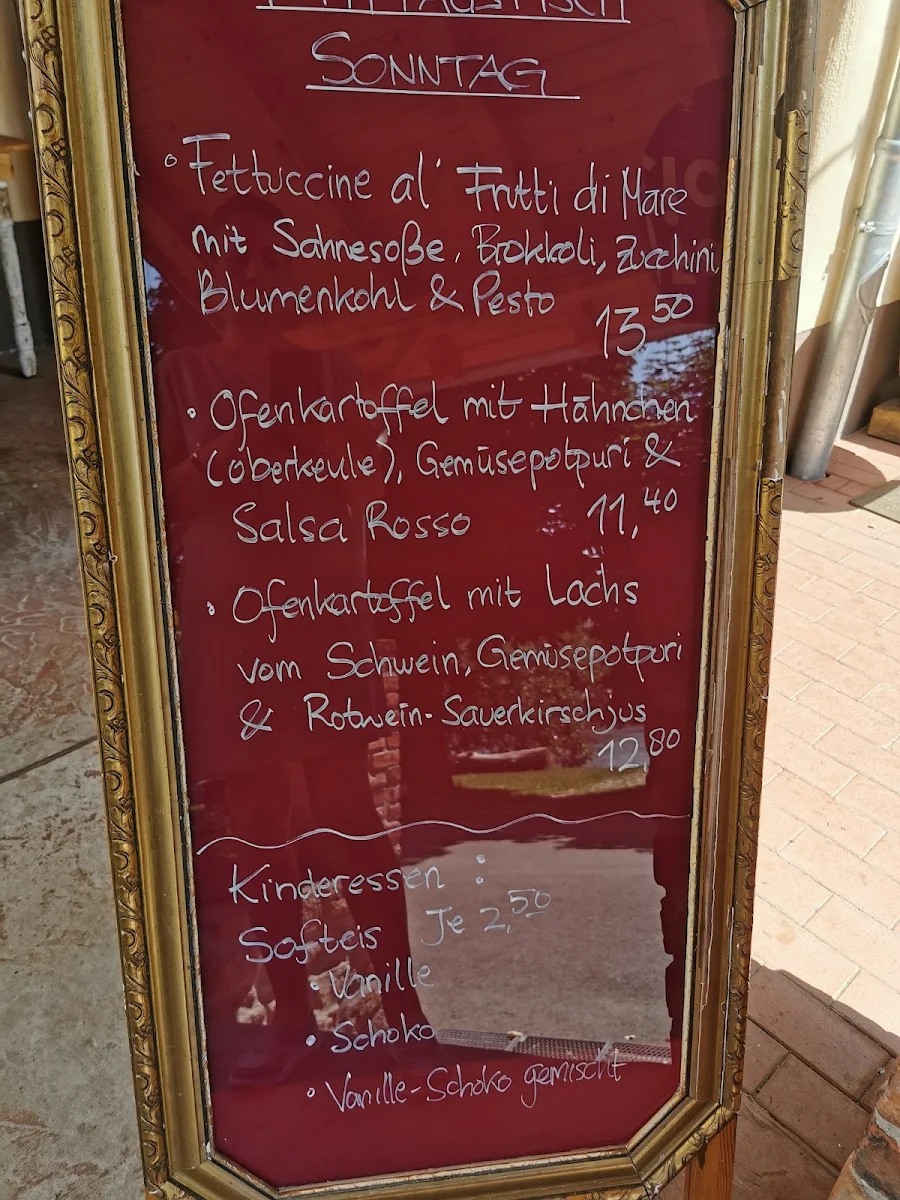 MITTAGSTISCH
SONNTAG
Fettuccine al' Frutti di Mare
mit Sahnesoße, Brokkoli, Zucchini,
Blumenkohl & Pesto
13,50
Ofenkartoffel mit Hähnchen
(Oberkeule), Gemüsepotpuri &
Salsa Rosso 11,40
Ofenkartoffel mit Lachs
vom Schwein, Gemüsepotpuri
& Rotwein-Sauerkirschjus
12,80
Kinderessen :
Softeis Je 2,50
• Vanille
• Schoko
• Vanille-Schoko gemischt